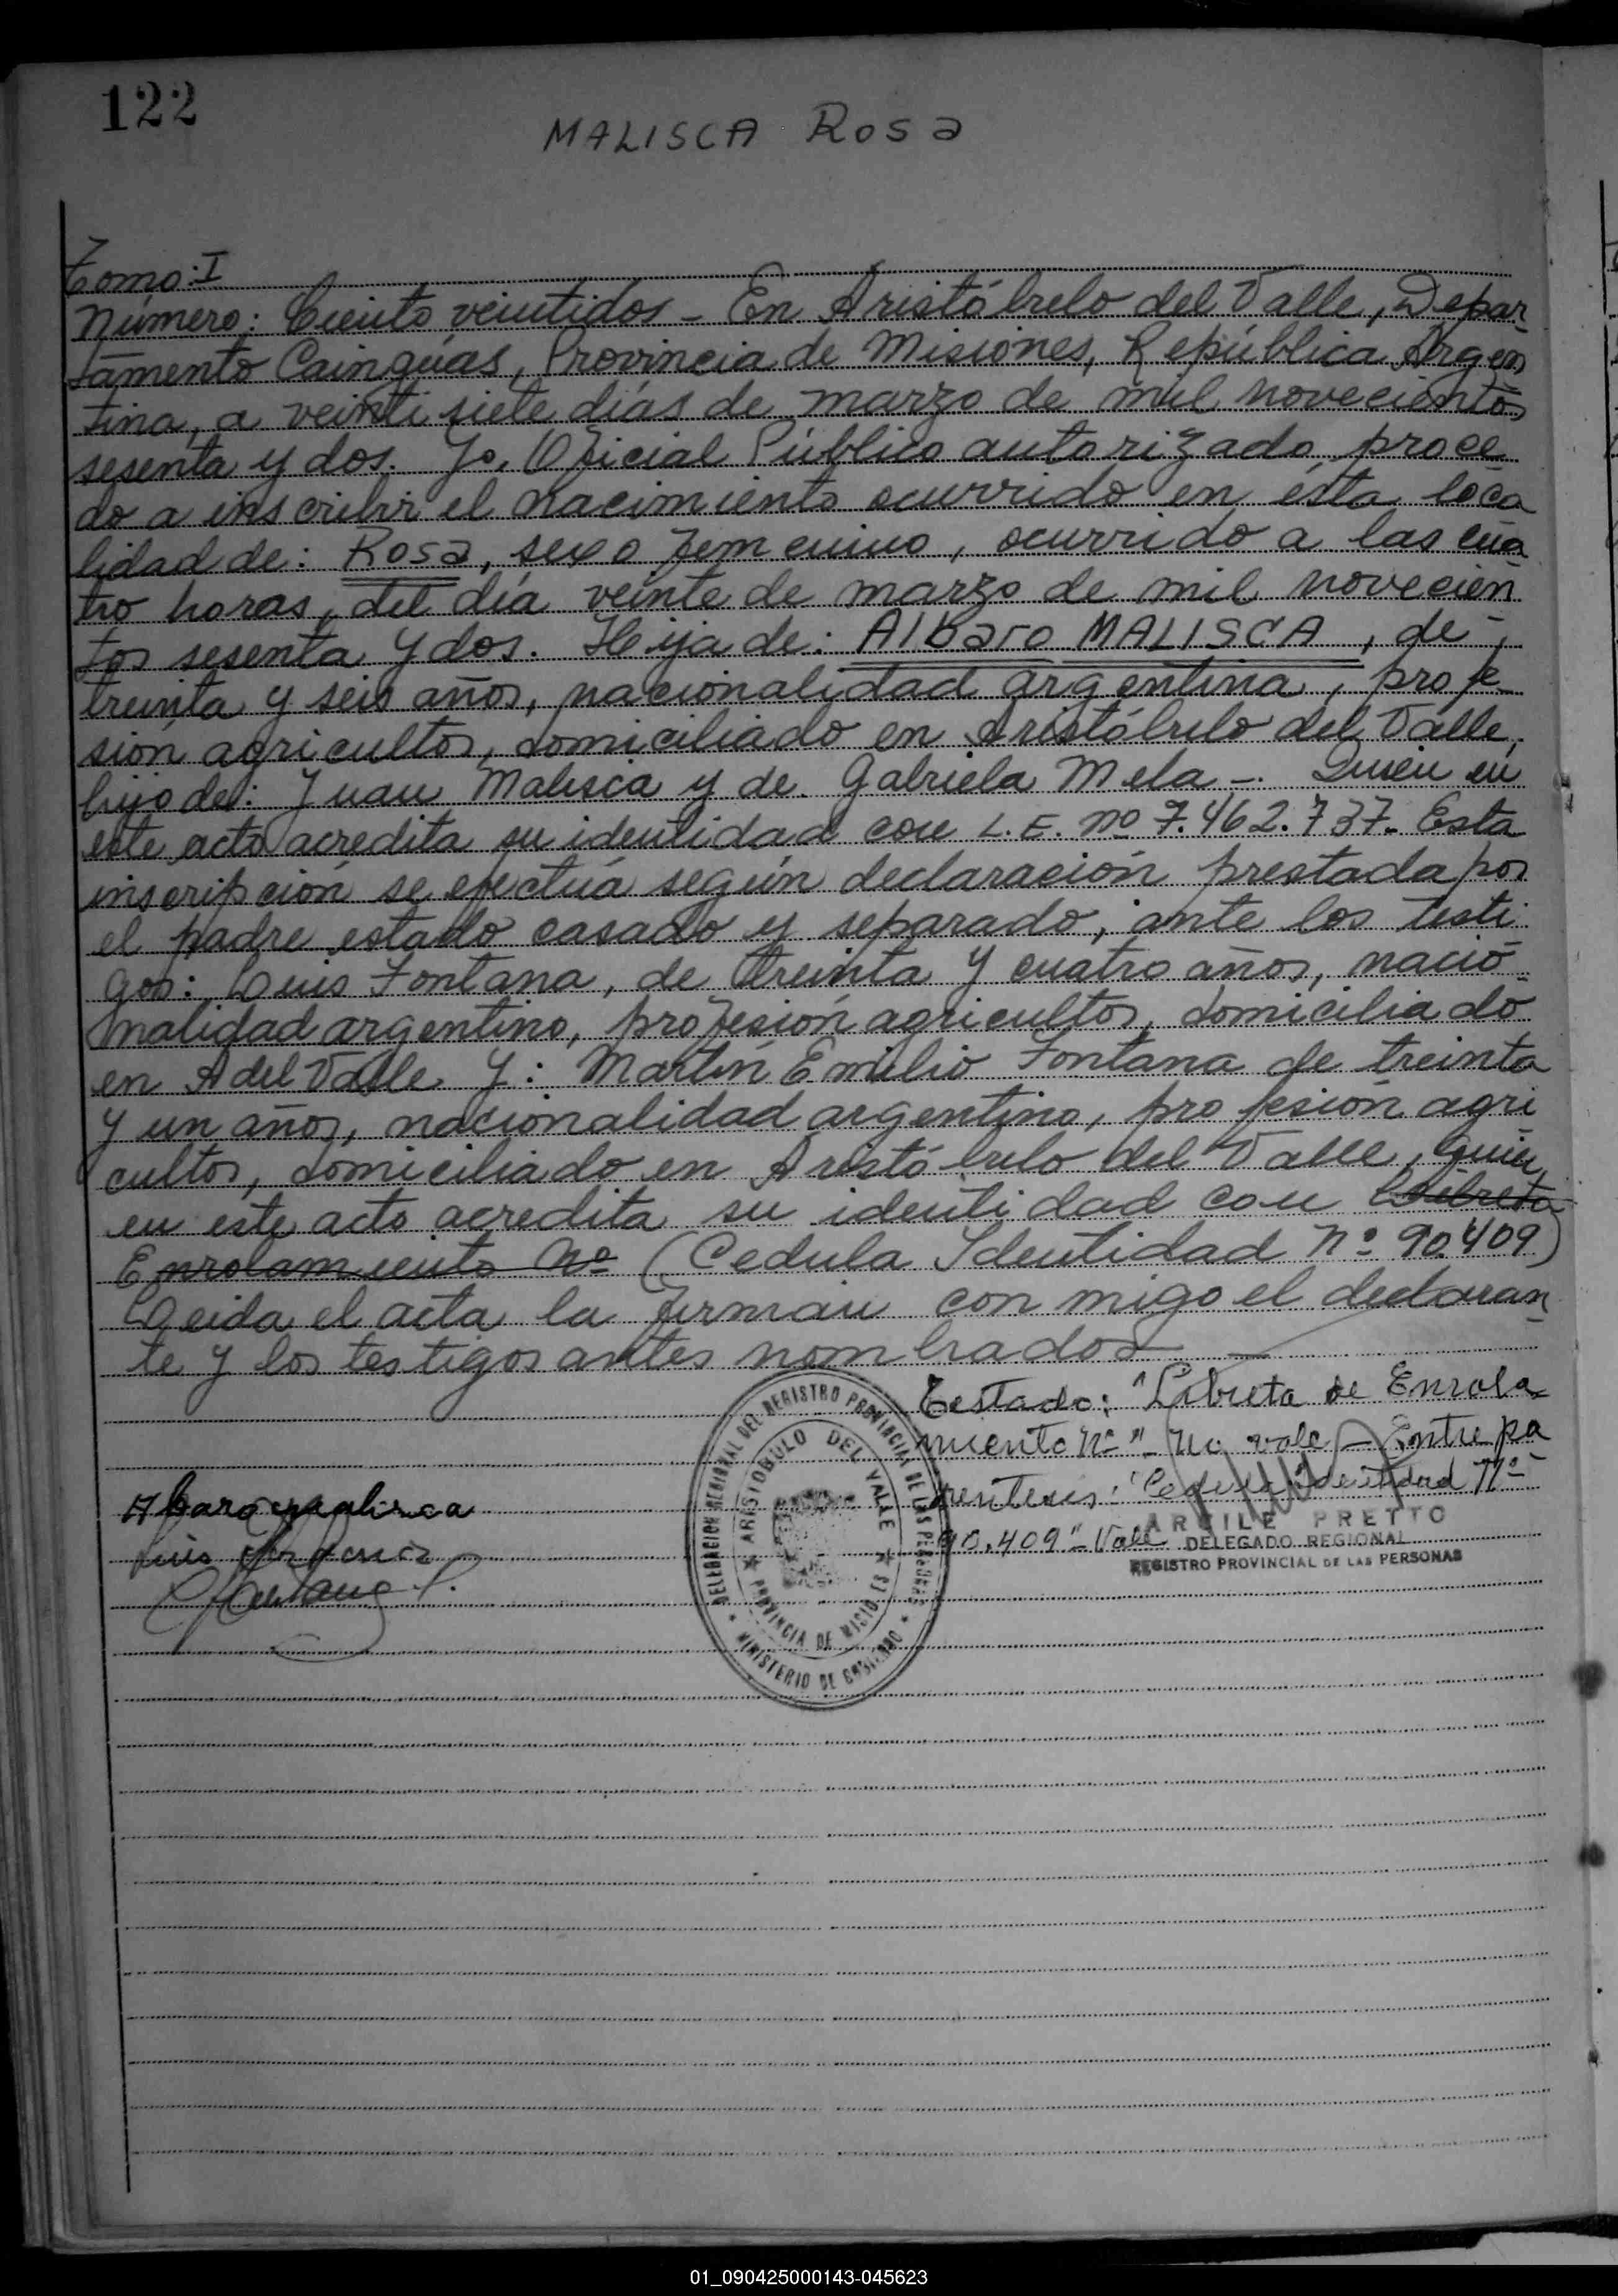 122
MALISCA Rosa
Tomo: I
Número: Ciento veintidos - En Aristóbulo del Valle, Depar-
tamento Cainguás, Provincia de Misiones, República Argen
tina, a veinti siete días de marzo de mil novecientos
sesenta y dos. Yo, Oficial Público autorizado, proce
do a inscribir el nacimiento ocurrido en ésta loca
lidad de: Rosa, sexo femenino, ocurrido a las cua
tro horas, del día veinte de marzo de mil novecien
tos sesenta y dos. Hija de: Albaro MALISCA, de
treinta y seis años, nacionalidad argentina, profe
sión agricultor, domiciliado en Aristóbulo del Valle,
hijo de: Juan Malisca y de Gabriela Mela -. Quien en
este acto acredita su identidad con L.E. nº 7.462.737.- Esta
inscripción se efectúa según declaración prestada por
el padre estado casado y separado, ante los testi
gos: Luis Fontana, de treinta y cuatro años, nacio-
nalidad argentino, profesión agricultor, domiciliado
en A del Valle y: Martín Emilio Fontana de treinta
y un años, nacionalidad argentino, profesión agri
cultor, domiciliado en Aristóbulo del Valle, quien
en este acto acredita su identidad con Libreta
Enrolamiento Nº (Cedula Identidad Nº 90.409)
Leida el acta la firman con migo el declaran-
te y los testigos antes nombrados
Testado: "Libreta de Enrola-
miento Nº" - No vale - Entre pa
rentesis: "Cedula Identidad Nº
90.409" - Vale
Albaro malisca
Luis
Fontana
DELEGACION REGIONAL DEL REGISTRO PROVINCIAL DE LAS PERSONAS
ARISTOBULO DEL VALLE
PROVINCIA DE MISIONES
MINISTERIO DE GOBIERNO
PRETTO
DELEGADO REGIONAL
REGISTRO PROVINCIAL DE LAS PERSONAS
01_090425000143-045623